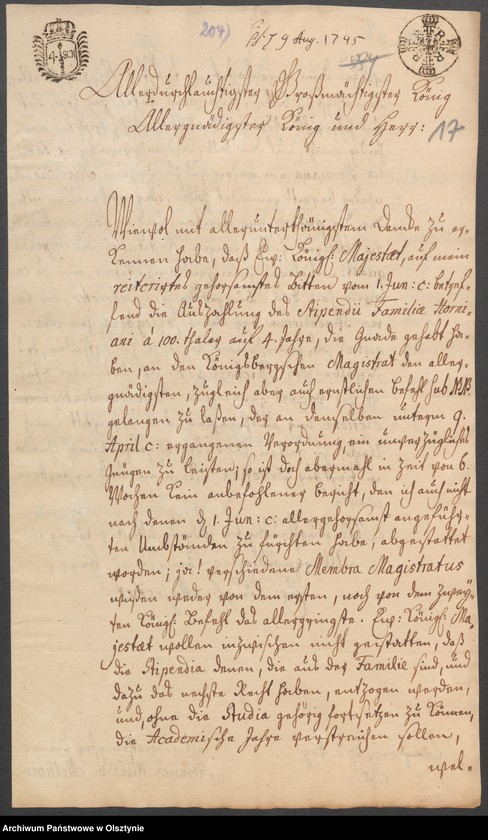 204)
d. 9 Aug. 1745
4 SCR
Allerdurchlauchtigster Großmächtigster König
Allergnädigster König und Herr:
17
Wiewol mit allerunterthänigstem Dancke zu er-
kennen habe, daß Ew: Königl: Majestæt, auf mein
reiterirtes gehorsamstes Bitten vom 1. Jun: c: betref-
fend die Auszahlung des Stipendii Familiæ Horni-
ani à 100. thaler auf 4. Jahre, die Gnade gehabt ha-
ben, an den Königsbergschen Magistrat den aller-
gnädigsten, zugleich aber auch ernstlichen Befehl sub
gelangen zu laßen, der an denselben unterm 9.
April c: ergangenen Verordnung, ein unverzügliches
Gnügen zu leisten; so ist doch abermahl in Zeit von 6.
Wochen kein anbefohlener Bericht, den ich auch nicht
nach denen d 1. Jun: c: allergehorsamst angeführ-
ten Umbständen zu fürchten habe, abgestattet
worden; ja! verschiedene Membra Magistratus
wißen weder von dem ersten, noch von dem zwey-
ten Königl: Befehl das allergeringste. Ew: Königl: Ma-
jestæt wollen inzwischen nicht gestatten, daß
die Stipendia denen, die aus der Familie sind, und
dazu das nechste Recht haben, entzogen werden,
und, ohne die Studia gehörig fortsetzen zu können,
die Academische Jahre verstreichen sollen,
wel-
Archiwum Państwowe w Olsztynie